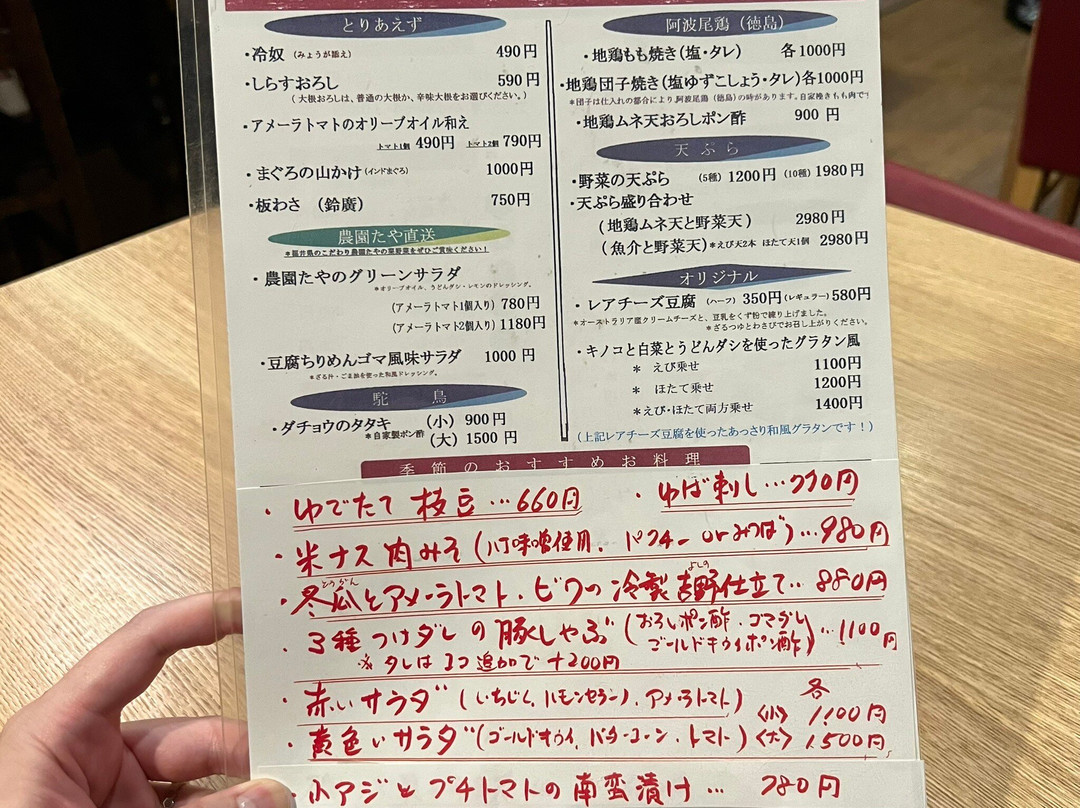 とりあえず
・冷奴 (みょうが添え) 490円
・しらすおろし 590円
(大根おろしは、普通の大根か、辛味大根をお選びください。)
・アメーラトマトのオリーブオイル和え
トマト1個 490円 トマト2個 790円
・まぐろの山かけ (インドまぐろ) 1000円
・板わさ (鈴廣) 750円
農園たや直送
*福井県のこだわり農園たやの葉野菜をぜひご賞味ください!
・農園たやのグリーンサラダ
*オリーブオイル、うどんダシ・レモンのドレッシング。
(アメーラトマト1個入り) 780円
(アメーラトマト2個入り) 1180円
・豆腐ちりめんゴマ風味サラダ 1000円
*ざる汁・ごま油を使った和風ドレッシング。
駝鳥
・ダチョウのタタキ (小) 900円
*自家製ポン酢 (大) 1500円
阿波尾鶏(徳島)
・地鶏もも焼き(塩・タレ) 各1000円
・地鶏団子焼き(塩ゆずこしょう・タレ)各1000円
*団子は仕入れの都合により、阿波尾鶏(徳島)の時があります。自家挽きもも肉で
・地鶏ムネ天おろしポン酢 900円
天ぷら
・野菜の天ぷら (5種) 1200円 (10種) 1980円
・天ぷら盛り合わせ
(地鶏ムネ天と野菜天) 2980円
(魚介と野菜天)*えび天2本 ほたて天1個 2980円
オリジナル
・レアチーズ豆腐 (ハーフ) 350円 (レギュラー) 580円
*オーストラリア産クリームチーズと、豆乳をくず粉で練り上げました。
*ざるつゆとわさびでお召し上がりください。
・キノコと白菜とうどんダシを使ったグラタン風
* えび乗せ 1100円
* ほたて乗せ 1200円
*えび・ほたて両方乗せ 1400円
(上記レアチーズ豆腐を使ったあっさり和風グラタンです!)
季節のおすすめお料理
・ゆでたて枝豆…660円 ・ゆば刺し…770円
・米ナス肉みそ(八丁味噌使用、パクチー orみつば)…980円
・冬瓜とアメーラトマト、ビワの冷製吉野仕立て…880円
とうがん よしの
・3種つけダレの豚しゃぶ(おろしポン酢、ゴマダレ
ゴールドキウイポン酢)…1100円
※タレは1コ追加で+200円
・赤いサラダ(いちじく、ハモンセラーノ、アメーラトマト) 各
〈小〉1100円
・黄色いサラダ(ゴールドキウイ、バターコーン、トマト)〈大〉1500円
・小アジとプチトマトの南蛮漬け… 780円